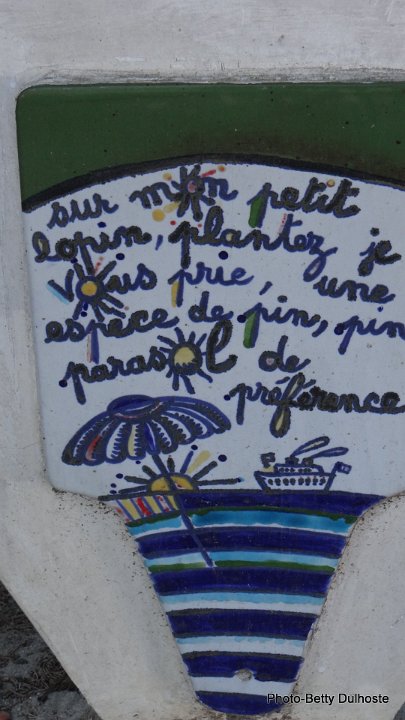 sur mon petit
lopin, plantez je
vous prie, une
espèce de pin, pin
parasol de
préférence
Photo-Betty Dulhoste